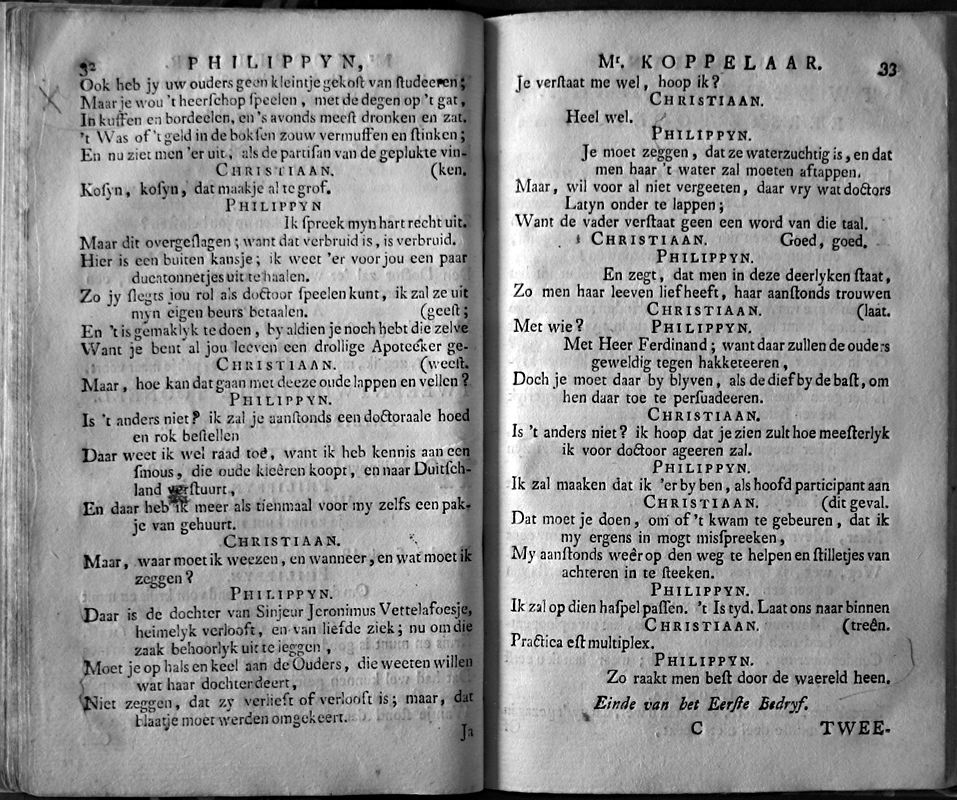 32
PHILIPPYN,
Ook heb jy uw ouders geen kleintje gekost van studeeren;
Maar je wou 't heerschop speelen, met de degen op 't gat,
In kuffen en bordeelen, en 's avonds meest dronken en zat.
't Was of 't geld in de boksen zouw vermuffen en stinken;
En nu ziet men 'er uit, als de partisan van de geplukte vin-
CHRISTIAAN. (ken.
Kosyn, kosyn, dat maakje al te grof.
PHILIPPYN
Ik spreek myn hart recht uit.
Maar dit overgeslagen; want dat verbruid is, is verbruid.
Hier is een buiten kansje; ik weet 'er voor jou een paar
ducatonnetjes uit te haalen.
Zo jy slegts jou rol als doctoor speelen kunt, ik zal ze uit
myn eigen beurs betaalen. (geest;
En 't is gemaklyk te doen, by aldien je noch hebt die zelve
Want je bent al jou leeven een drollige Apoteeker ge-
CHRISTIAAN. (weest.
Maar, hoe kan dat gaan met deeze oude lappen en vellen?
PHILIPPYN.
Is 't anders niet? ik zal je aanstonds een doctoraale hoed
en rok bestellen
Daar weet ik wel raad toe, want ik heb kennis aan een
smous, die oude kleêren koopt, en naar Duitsch-
land verstuurt,
En daar heb ik meer als tienmaal voor my zelfs een pak-
je van gehuurt.
CHRISTIAAN.
Maar, waar moet ik weezen, en wanneer, en wat moet ik
zeggen?
PHILIPPYN.
Daar is de dochter van Sinjeur Jeronimus Vettelafoesje,
heimelyk verlooft, en van liefde ziek; nu om die
zaak behoorlyk uit te leggen,
Moet je op hals en keel aan de Ouders, die weeten willen
wat haar dochter deert,
Niet zeggen, dat zy verlieft of verlooft is; maar, dat
blaatje moet werden omgekeert.
Ja
Mr. KOPPELAAR.
33
Je verstaat me wel, hoop ik?
CHRISTIAAN.
Heel wel.
PHILIPPYN.
Je moet zeggen, dat ze waterzuchtig is, en dat
men haar 't water zal moeten aftappen.
Maar, wil voor al niet vergeeten, daar vry wat doctors
Latyn onder te lappen;
Want de vader verstaat geen een word van die taal.
CHRISTIAAN. Goed, goed.
PHILIPPYN.
En zegt, dat men in deze deerlyken staat,
Zo men haar leeven lief heeft, haar aanstonds trouwen
CHRISTIAAN. (laat.
Met wie? PHILIPPYN.
Met Heer Ferdinand; want daar zullen de ouders
geweldig tegen hakketeeren,
Doch je moet daar by blyven, als de dief by de bast, om
hen daar toe te persuadeeren.
CHRISTIAAN.
Is 't anders niet? ik hoop dat je zien zult hoe meesterlyk
ik voor doctoor ageeren zal.
PHILIPPYN.
Ik zal maaken dat ik 'er by ben, als hoofd participant aan
CHRISTIAAN. (dit geval.
Dat moet je doen, om of 't kwam te gebeuren, dat ik
my ergens in mogt misspreeken,
My aanstonds weêr op den weg te helpen en stilletjes van
achteren in te steeken.
PHILIPPYN.
Ik zal op dien haspel passen. 't Is tyd. Laat ons naar binnen
CHRISTIAAN. (treên.
Practica est multiplex.
PHILIPPYN.
Zo raakt men best door de waereld heen.
Einde van het Eerste Bedryf.
C TWEE-